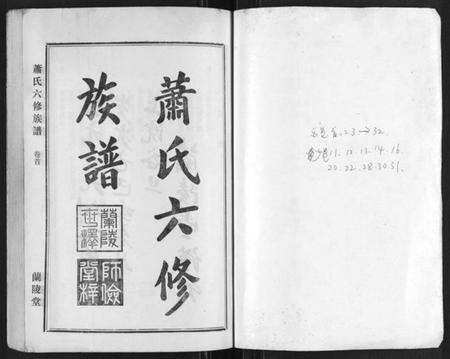 蕭氏六修
族譜
蘭陵
世澤
師儉
堂梓
蕭氏六修族譜
卷首
蘭陵堂
23→32.
11. 12. 13. 14. 16.
20. 22. 28. 30. 31.